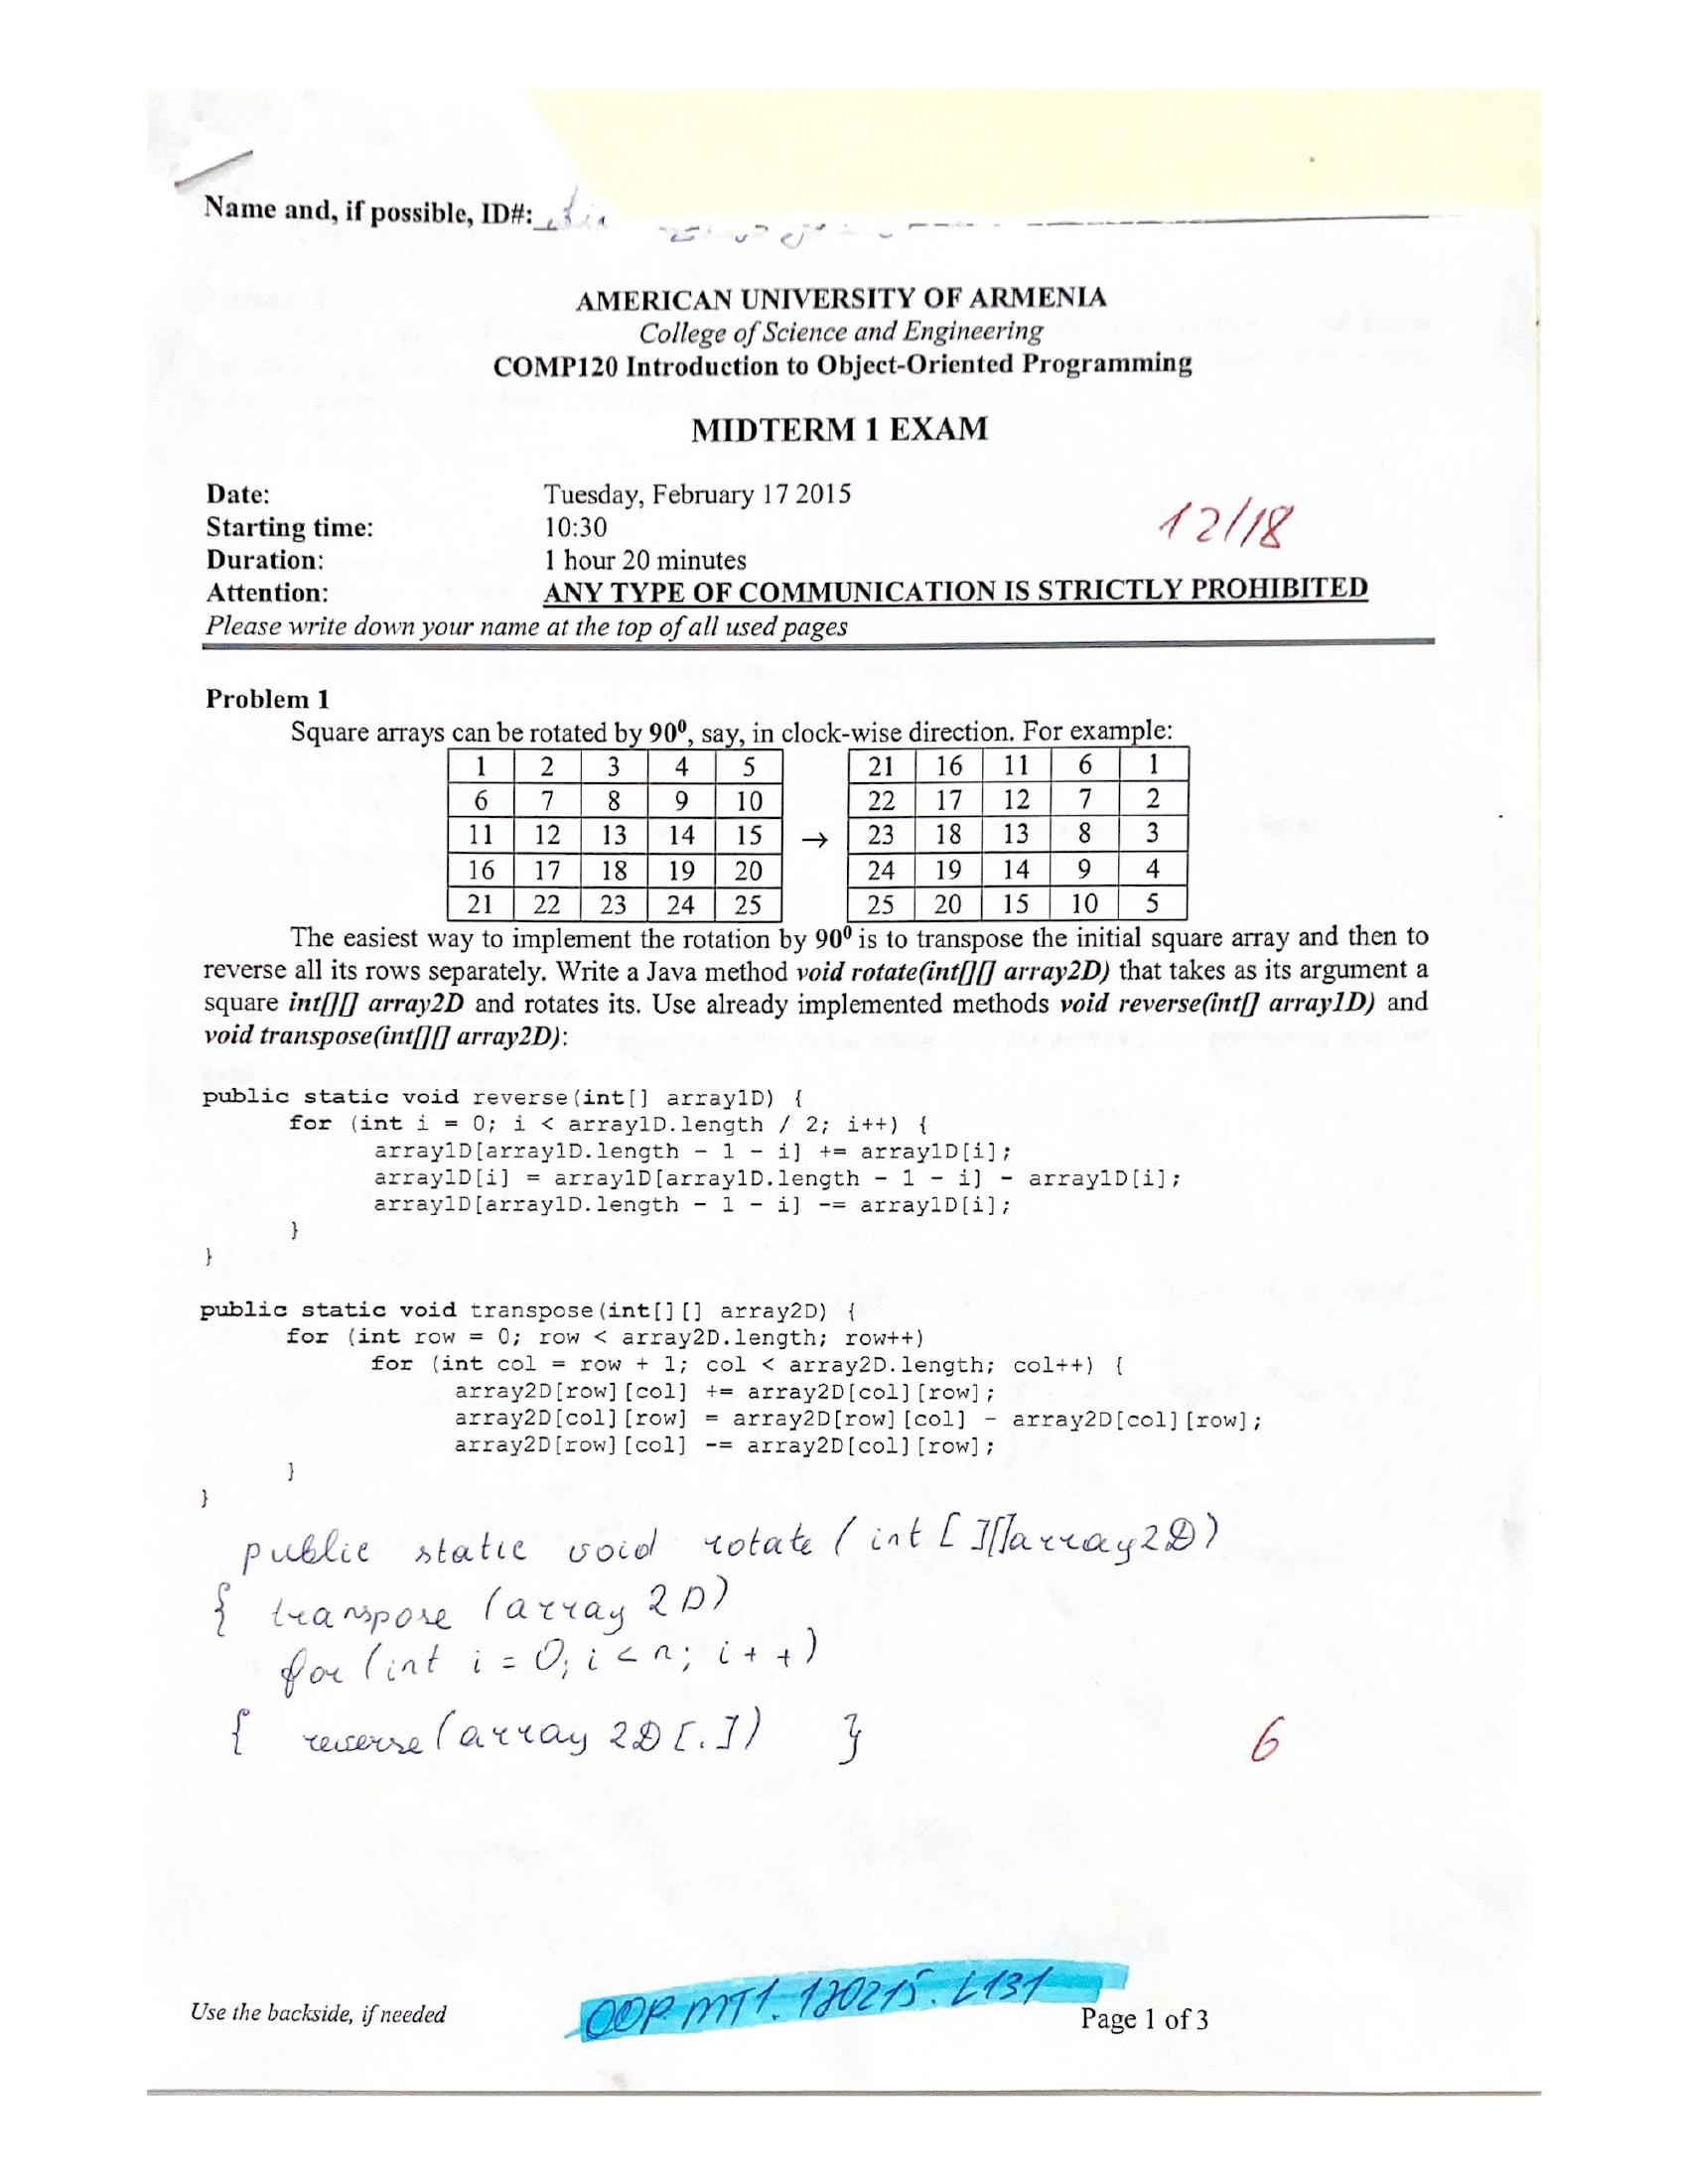 Name and, if possible, ID#:
AMERICAN UNIVERSITY OF ARMENIA
College of Science and Engineering
COMP120 Introduction to Object-Oriented Programming
MIDTERM 1 EXAM
Date: Tuesday, February 17 2015
12/18
Starting time: 10:30
Duration: 1 hour 20 minutes
Attention: ANY TYPE OF COMMUNICATION IS STRICTLY PROHIBITED
Please write down your name at the top of all used pages
Problem 1
Square arrays can be rotated by 90⁰, say, in clock-wise direction. For example:
1 2 3 4 5 21 16 11 6 1
6 7 8 9 10 22 17 12 7 2
11 12 13 14 15 → 23 18 13 8 3
16 17 18 19 20 24 19 14 9 4
21 22 23 24 25 25 20 15 10 5
The easiest way to implement the rotation by 90⁰ is to transpose the initial square array and then to
reverse all its rows separately. Write a Java method void rotate(int[][] array2D) that takes as its argument a
square int[][] array2D and rotates its. Use already implemented methods void reverse(int[] array1D) and
void transpose(int[][] array2D):
public static void reverse(int[] array1D) {
for (int i = 0; i < array1D.length / 2; i++) {
array1D[array1D.length - 1 - i] += array1D[i];
array1D[i] = array1D[array1D.length - 1 - i] - array1D[i];
array1D[array1D.length - 1 - i] -= array1D[i];
}
}
public static void transpose(int[][] array2D) {
for (int row = 0; row < array2D.length; row++)
for (int col = row + 1; col < array2D.length; col++) {
array2D[row][col] += array2D[col][row];
array2D[col][row] = array2D[row][col] - array2D[col][row];
array2D[row][col] -= array2D[col][row];
}
}
public static void rotate (int [][]array2D)
{ transpose (array 2D)
for (int i = 0; i < n; i + +)
{ reverse (array 2D [.]) }
6
Use the backside, if needed
OOP.MT1.170215.L131
Page 1 of 3